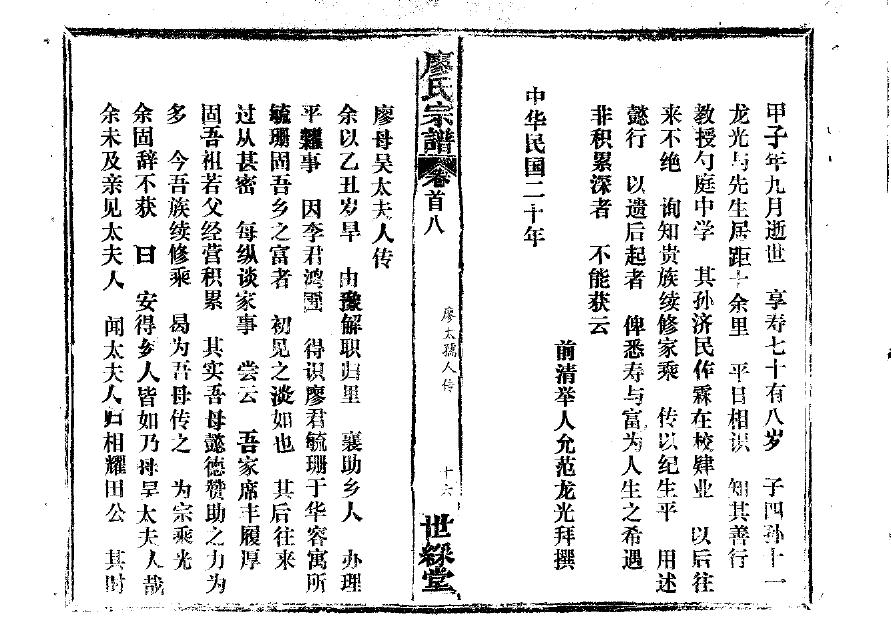 甲子年九月逝世 享寿七十有八岁 子四孙十一
龙光与先生居距十余里 平日相识 知其善行
教授勺庭中学 其孙济民作霖在校肄业 以后往
来不绝 询知贵族续修家乘 传以纪生平 用述
懿行 以遗后起者 俾悉寿与富为人生之希遇
非积累深者 不能获云
前清举人允范龙光拜撰
中华民国二十年
廖氏宗譜 卷首八 廖太孺人传 十六 世綵堂
廖母吴太夫人传
余以乙丑岁旱 由豫解职归里 襄助乡人 办理
平糶事 因李君鸿 得识廖君毓珊于华容寓所
毓珊固吾乡之富者 初见之淡如也 其后往来
过从甚密 每纵谈家事 尝云 吾家席丰履厚
固吾祖若父经营积累 其实吾母懿德赞助之力为
多 今吾族续修乘 曷为吾母传之 为宗乘光
余固辞不获 曰 安得乡人皆如乃母吴太夫人哉
余未及亲见太夫人 闻太夫人归相耀田公 其时